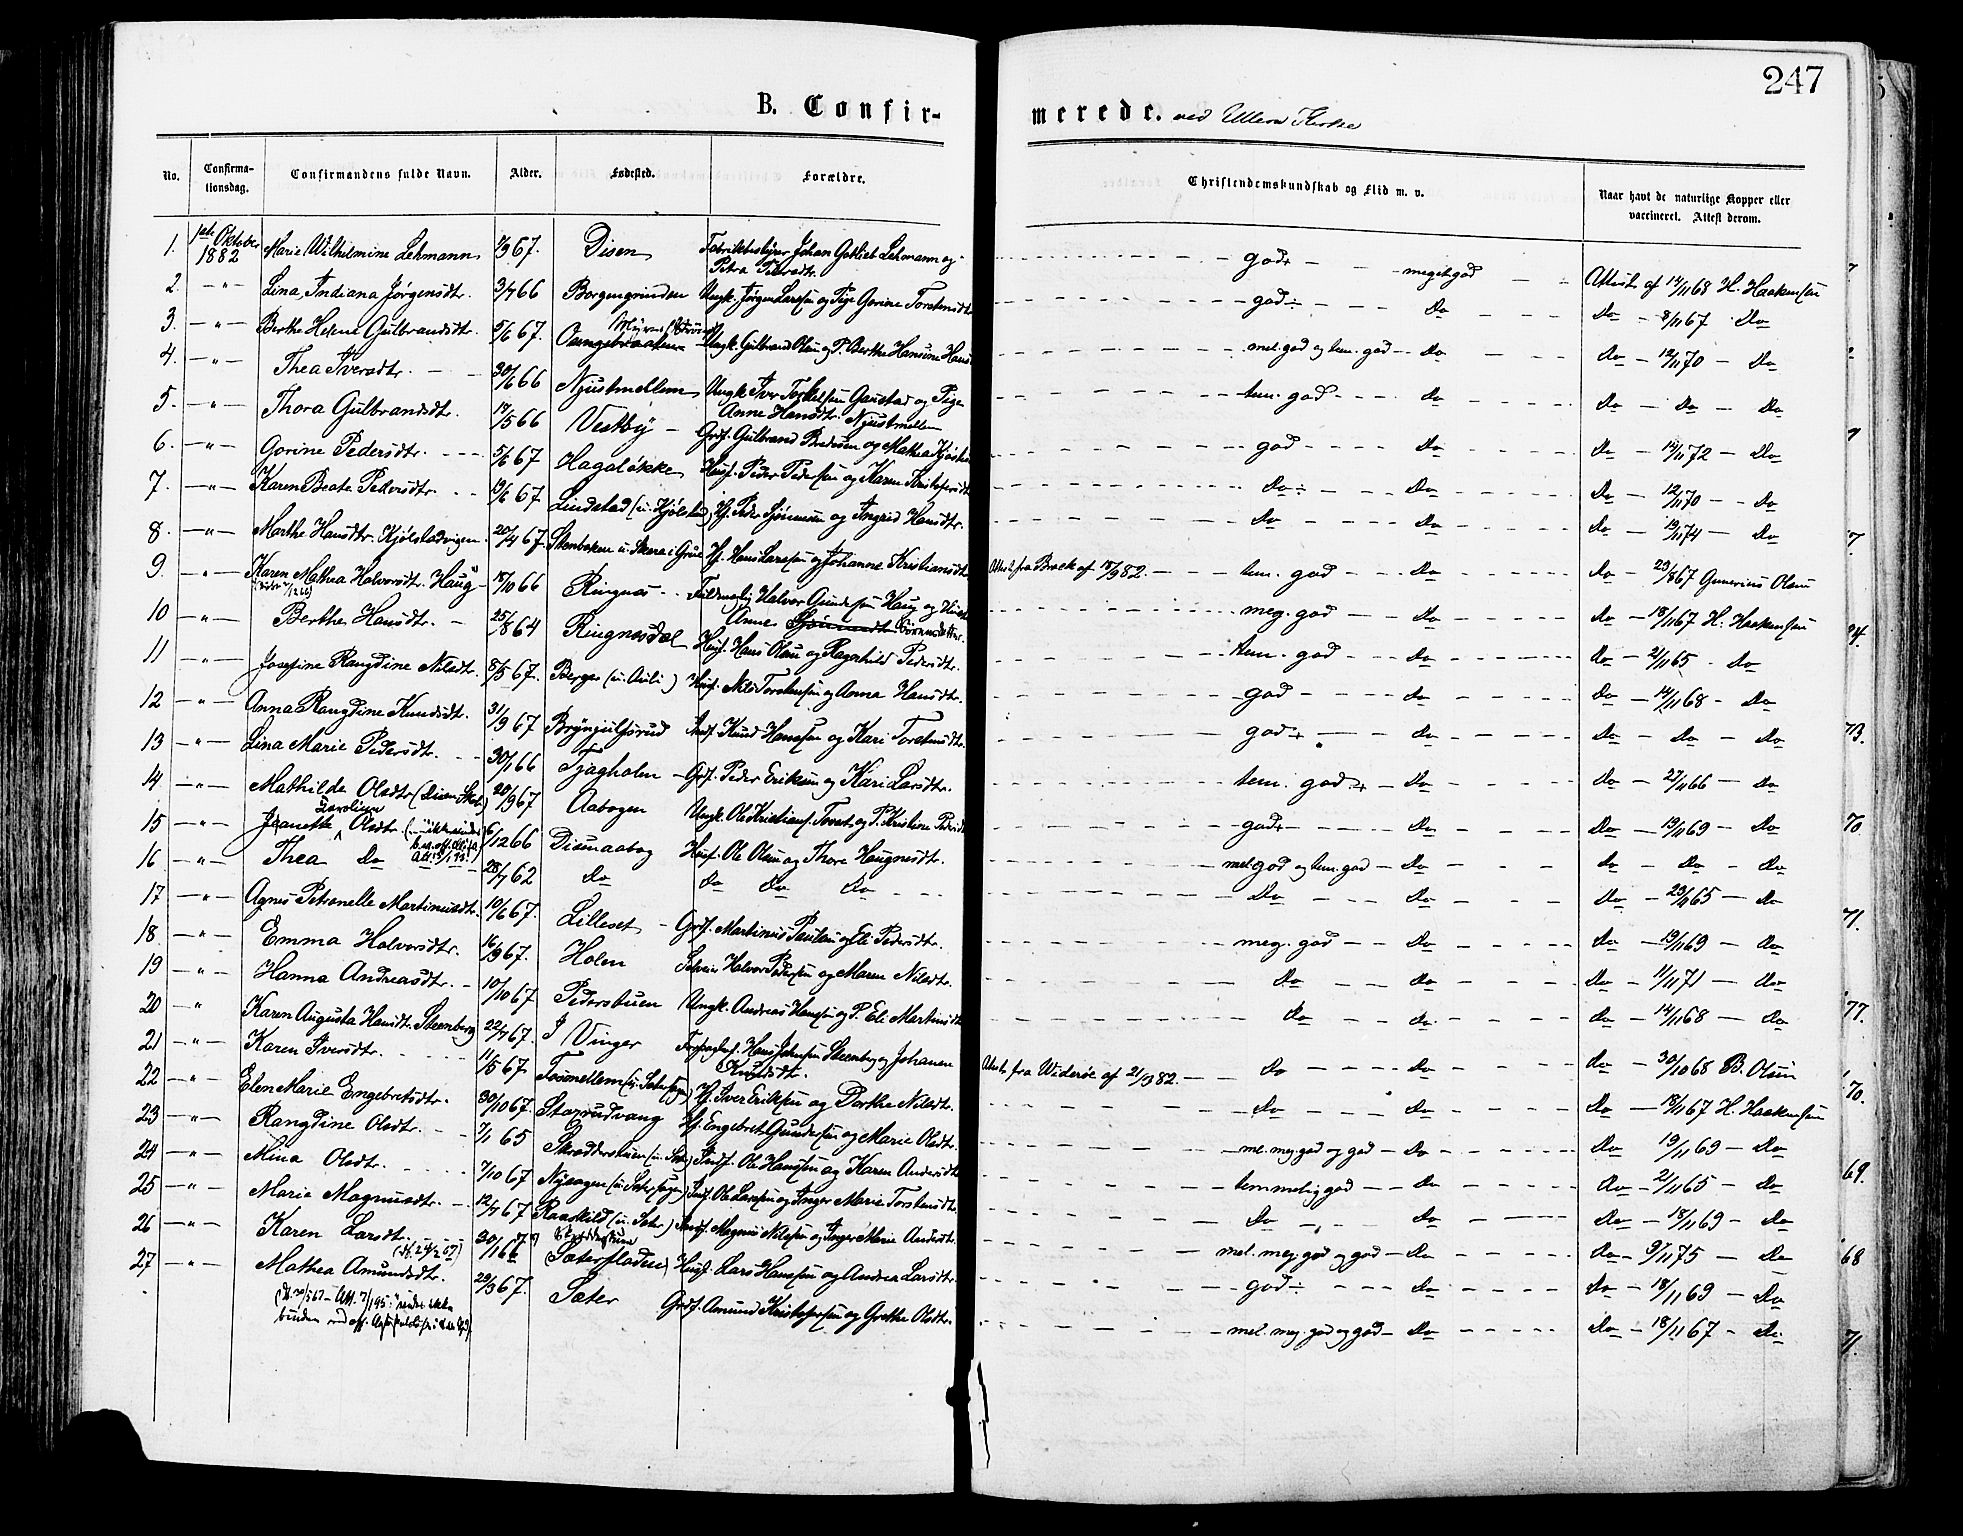 247
B. Confirmerede. ved Ullern Kirke
No. Confirmationsdag. Confirmandens fulde Navn. Alder. Fødested. Forældre. Christendomskundskab og Flid m. v. Naar havt de naturlige Kopper eller vaccineret. Attest derom.
1. 1ste Oktober 1882 Marie Wilhelmine Lehmann 67. Disen Johan Gotlieb Lehmann og Petra god meget god Attest af 14/11 68 H. Haakensen
2. — " — Lina Indiana Jørgensdtr. 3/7 66 Borgengrinden Ungk. Jørgen Larsen og Pige Gorine Torstensdtr god ÷ Do Do 8/11 67 Do
3. — " — Berthe Helene Gulbrandsdtr. 5/6 67. Ungk. Gulbrand Olsen og P. Berthe Hansine Hans mel. god og tem. god Do Do 12/11 70 Do
4. — " — Thea Iversdtr. 30/6 66 Njustmellem Ungk. Iver Torkelsen Gaustad og Pige Anne Hansdtr. Njustmellem tem. god Do Do Do Do
5. — " — Thora Gulbrandsdt. 19/5 66 Vestby Grdf. Gulbrand og Mathea god Do Do 14/11 72 Do
6. — " — Gorine Pedersdtr. 5/6 67 Hagaløkke Husf. Peder Pedersen og Karen Kristofersdtr Do ÷ Do Do 12/11 70 Do
7. — " — Karen Beate Pedersdtr. 19/6 67 Lindstad (u. Kjølstad) Hf. Peder og Ingrid Hansdtr. Do Do Do 19/11 74 Do
8. — " — Marthe Hansdtr. Kjølstadvigen 20/4 67. Stenbaken u. Skara i Grue Hf. Hans Larsen og Johanne Kristiansdtr Attest fra Brock af 18/9 82. tem. god Do Do 29/8 67 Gunerius Olsen
9. — " — Karen Mathea Halvorsdtr. Haug 18/10 66 Ringnes Halvor Gundersen Haug og Hustru Anne meg. god Do Do 18/11 67 H. Haakensen
10 — " — Berthe Hansdtr. 25/8 64 Ringnesdal Husf. Hans Olsen og Ragnhild Pedersdtr. tem. god Do Do 21/11 65 Do
11 — " — Josefine Rangdine Nilsdtr. 8/5 67. Berger (u. Auli) Husf. Nils Torstensen og Anna Hansdtr. god Do Do 14/11 68 Do
12 — " — Anna Rangdine Knudsdt. 31/9 67 Brynjulfsrud Indf. Knud Hansen og Kari Torstensdtr. god Do Do Do Do
13 — " — Lina Marie Pedersdtr. 30/1 66 Tjagholen Grdf. Peder Eriksen og Kari Larsdtr. tem. god Do Do 27/11 66 Do
14 — " — Mathilde Olsdtr (Disen Skole) 20/9 67 Aabogen Ungk. Ole Kristians. og P. Kristine Pedersdtr god Do Do 19/11 69 Do
15 — " — Jeanette Karoline Olsdtr. 6/12 66 Disenaabog Husf. Ole Olsen og Thore Haagensdt. mel. god og tem. god Do Do Do Do
16 — " — Thea Do 28/7 62 Do Do Do Do Do Do Do 29/11 65 Do
17 — " — Agnes Petronelle Martinusdtr. 10/6 67. Lilleset Grdf. Martinus Paulsen og Eli Pedersdtr. meg. god Do Do 19/11 69 Do
18. — " — Emma Halvorsdtr. 16/9 67. Holen Selveier Halvor Pedersen og Maren Nilsdtr. Do Do Do 11/11 71 Do
19 — " — Hanna Andreasdtr. 10/10 67 Pedersbuen Ungk. Andreas Hansen og P. Eli Martinsdtr Do Do Do 14/11 68 Do
20 — " Karen Augusta Hansdtr. Steenberg 22/7 67. I Vinger Hans Johnsen Steenberg og Johanne Knudsdtr. Attest fra Widerøe af 21/9 82. Do Do Do 30/10 68 B. Olsen
21 — " — Karen Iversdtr. 11/5 67. Tosmellem (u. Sæterhagen) Hf. Iver Eriksen og Dorthe Nilsdtr. Do Do Do 18/11 67 H. Haakensen
22 — " — Elen Marie Engebretsdtr. 30/10 67. Storrudvang Hf. Engebret Gundersen og Marie Olsdtr. mel. meg. god og god Do Do 19/11 69 Do
23 — " — Rangdine Olsdtr. 7/1 65 Skrædderstuen (u. Sæter) Indf. Ole Hansen og Karen Andersdtr temmelig god Do Do 21/11 65 Do
24 — " — Mina Olsdtr. 7/10 67 Nyhagen (u. Sæterhagen) Indf. Ole Larsen og Inger Marie Torstensdtr. Do Do Do 18/11 69 Do
25 — " — Marie Magnusdtr. 12/7 67 Ranskild (u. Sæter) Indf. Magnus Nilsen og Inger Marie Andersdtr. mel. meg. god og god Do Do 9/11 75 Do
26 — " — Karen Larsdtr. 30/1 66 Sæterfladen Husf. Lars Hansen og Andrea Larsdtr. god ÷ Do Do 18/11 69 Do
27 — " — Mathea Amundsdtr. 29/3 67. Sæter Grdf. Amund Kristofersen og Grethe Olsdtr. mel. meg. god og god Do Do 18/11 67 Do